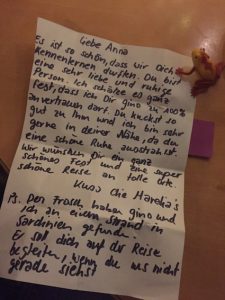 Liebe Anna
Es ist so schön, dass wir Dich
kennenlernen durften. Du bist
eine sehr liebe und ruhige
Person. Ich schätze es ganz
fest, dass ich Dir Gino zu 100%
anvertrauen darf. Du kuckst so
gut zu Ihm und ich bin sehr
gerne in deiner Nähe, da du
eine schöne Ruhe ausstrahlst.
Wir wünschen Dir ein ganz
schönes Fest und eine super
schöne Reise an tolle Orte.
Die
Ps. Den Frosch haben Gino und
ich an einem Strand in
Sardinien gefunden.
Er soll dich auf dr Reise
begleiten, wenn du uns nicht
gerade siehst